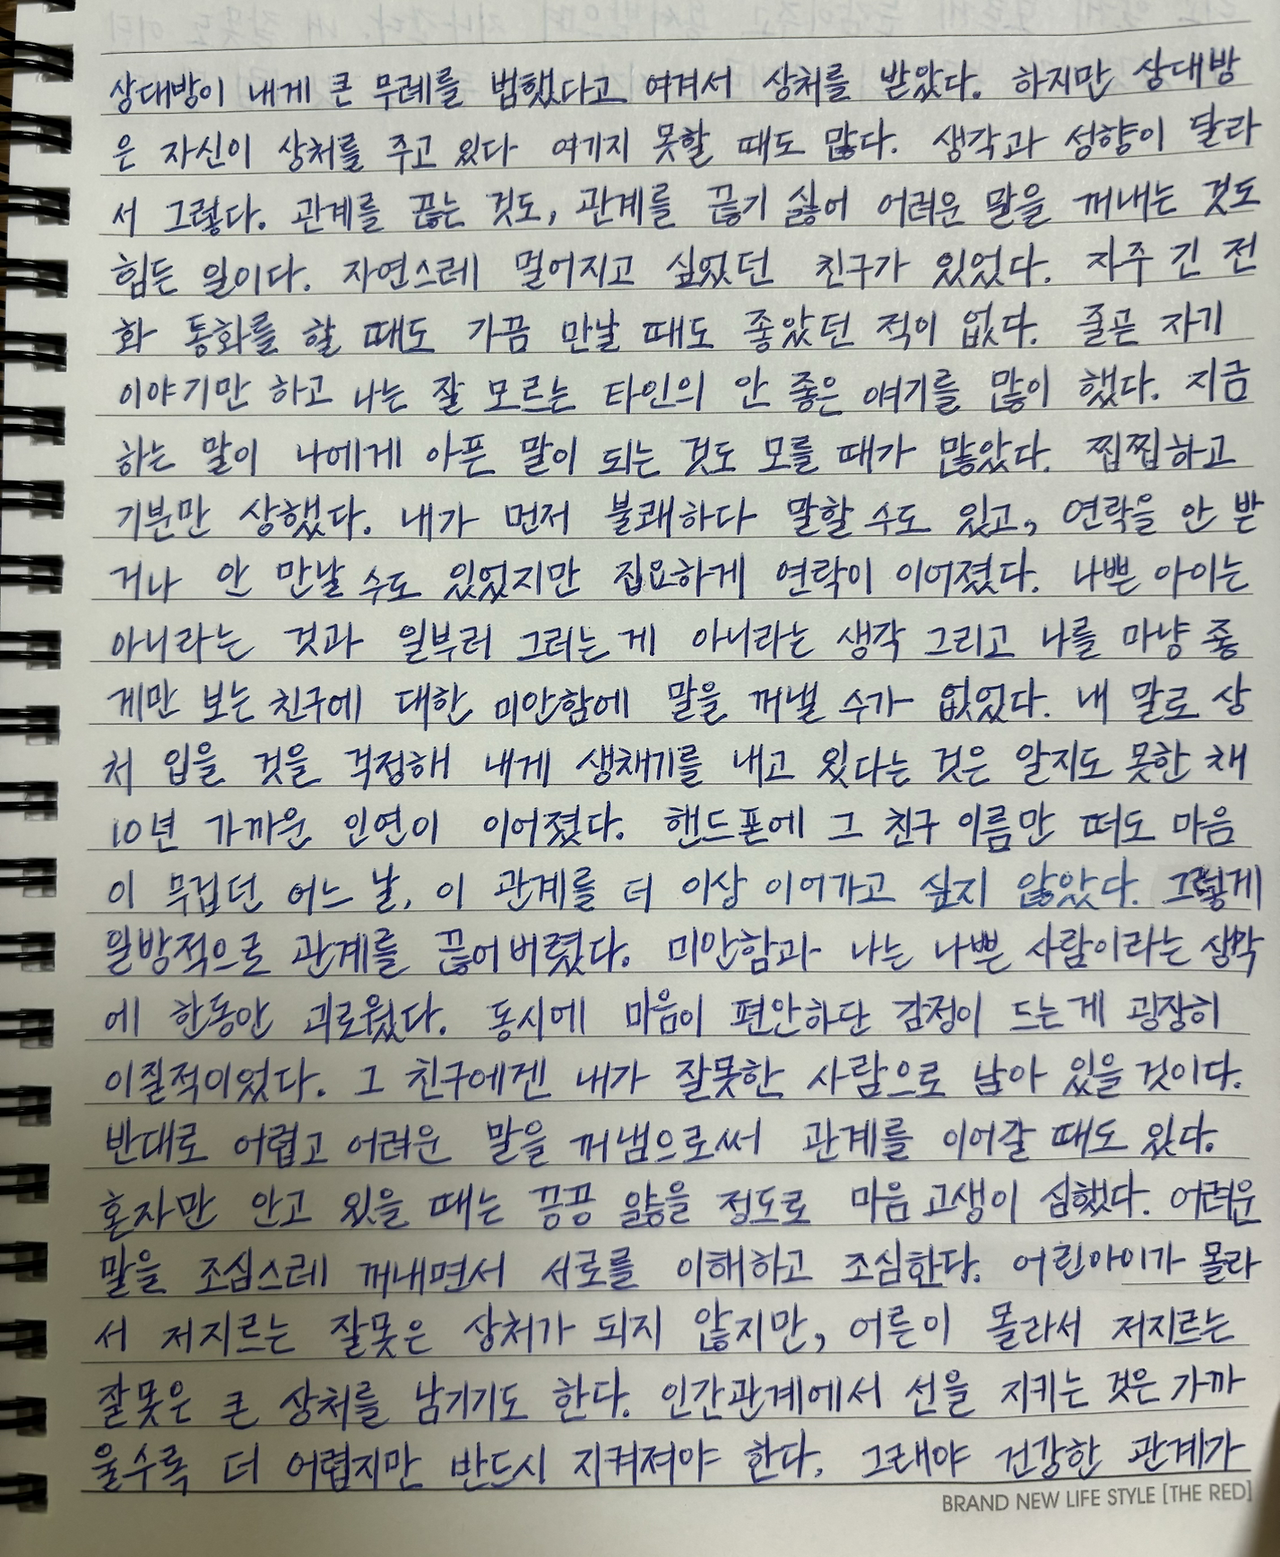 상대방이 내게 큰 무례를 범했다고 여겨서 상처를 받았다. 하지만 상대방
은 자신이 상처를 주고 있다 여기지 못할 때도 많다. 생각과 성향이 달라
서 그렇다. 관계를 끊는 것도, 관계를 끊기 싫어 어려운 말을 꺼내는 것도
힘든 일이다. 자연스레 멀어지고 싶었던 친구가 있었다. 자주 긴 전
화 통화를 할 때도 가끔 만날 때도 좋았던 적이 없다. 줄곧 자기
이야기만 하고 나는 잘 모르는 타인의 안 좋은 얘기를 많이 했다. 지금
하는 말이 나에게 아픈 말이 되는 것도 모를 때가 많았다. 찝찝하고
기분만 상했다. 내가 먼저 불쾌하다 말할 수도 있고, 연락을 안 받
거나 안 만날 수도 있었지만 집요하게 연락이 이어졌다. 나쁜 아이는
아니라는 것과 일부러 그러는 게 아니라는 생각 그리고 나를 마냥 좋
게만 보는 친구에 대한 미안함에 말을 꺼낼 수가 없었다. 내 말로 상
처 입을 것을 걱정해 내게 생채기를 내고 있다는 것은 알지도 못한 채
10년 가까운 인연이 이어졌다. 핸드폰에 그 친구 이름만 떠도 마음
이 무겁던 어느 날, 이 관계를 더 이상 이어가고 싶지 않았다. 그렇게
일방적으로 관계를 끊어버렸다. 미안함과 나는 나쁜 사람이라는 생각
에 한동안 괴로웠다. 동시에 마음이 편안하단 감정이 드는 게 굉장히
이질적이었다. 그 친구에겐 내가 잘못한 사람으로 남아 있을 것이다.
반대로 어렵고 어려운 말을 꺼냄으로써 관계를 이어갈 때도 있다.
혼자만 안고 있을 때는 끙끙 앓을 정도로 마음 고생이 심했다. 어려운
말을 조심스레 꺼내면서 서로를 이해하고 조심한다. 어린아이가 몰라
서 저지르는 잘못은 상처가 되지 않지만, 어른이 몰라서 저지르는
잘못은 큰 상처를 남기기도 한다. 인간관계에서 선을 지키는 것은 가까
울수록 더 어렵지만 반드시 지켜져야 한다. 그래야 건강한 관계가
BRAND NEW LIFE STYLE [THE RED]